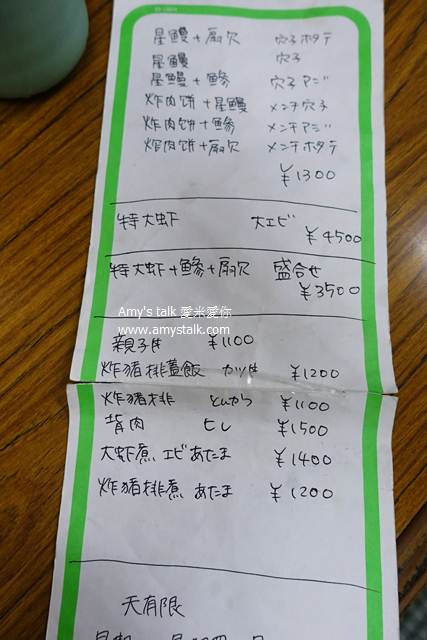 星鰻 + 扇欠 穴子ホタテ
星鰻 穴子
星鰻 + 鯵 穴子アジ
炸肉饼 + 星鰻 メンチ穴子
炸肉饼 + 鯵 メンチアジ
炸肉饼 + 扇欠 メンチホタテ
¥1300
特大虾 大エビ ¥4500
特大虾 + 鯵 + 扇欠 盛合せ
¥3500
Amy's talk 愛米愛你
www.amystalk.com
親子丼 ¥1100
炸猪排蓋飯 カツ丼 ¥1200
炸猪排 とんかつ ¥1100
背肉 ヒレ ¥1500
大虾煮 エビあたま ¥1400
炸猪排煮 あたま ¥1200
天有限